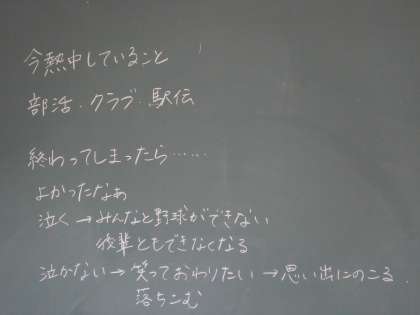 今熱中していること
部活・クラブ・駅伝
終わってしまったら……
よかったなぁ
泣く→みんなと野球ができない
後輩ともできなくなる
泣かない→笑っておわりたい→思い出にのこる
落ちこむ